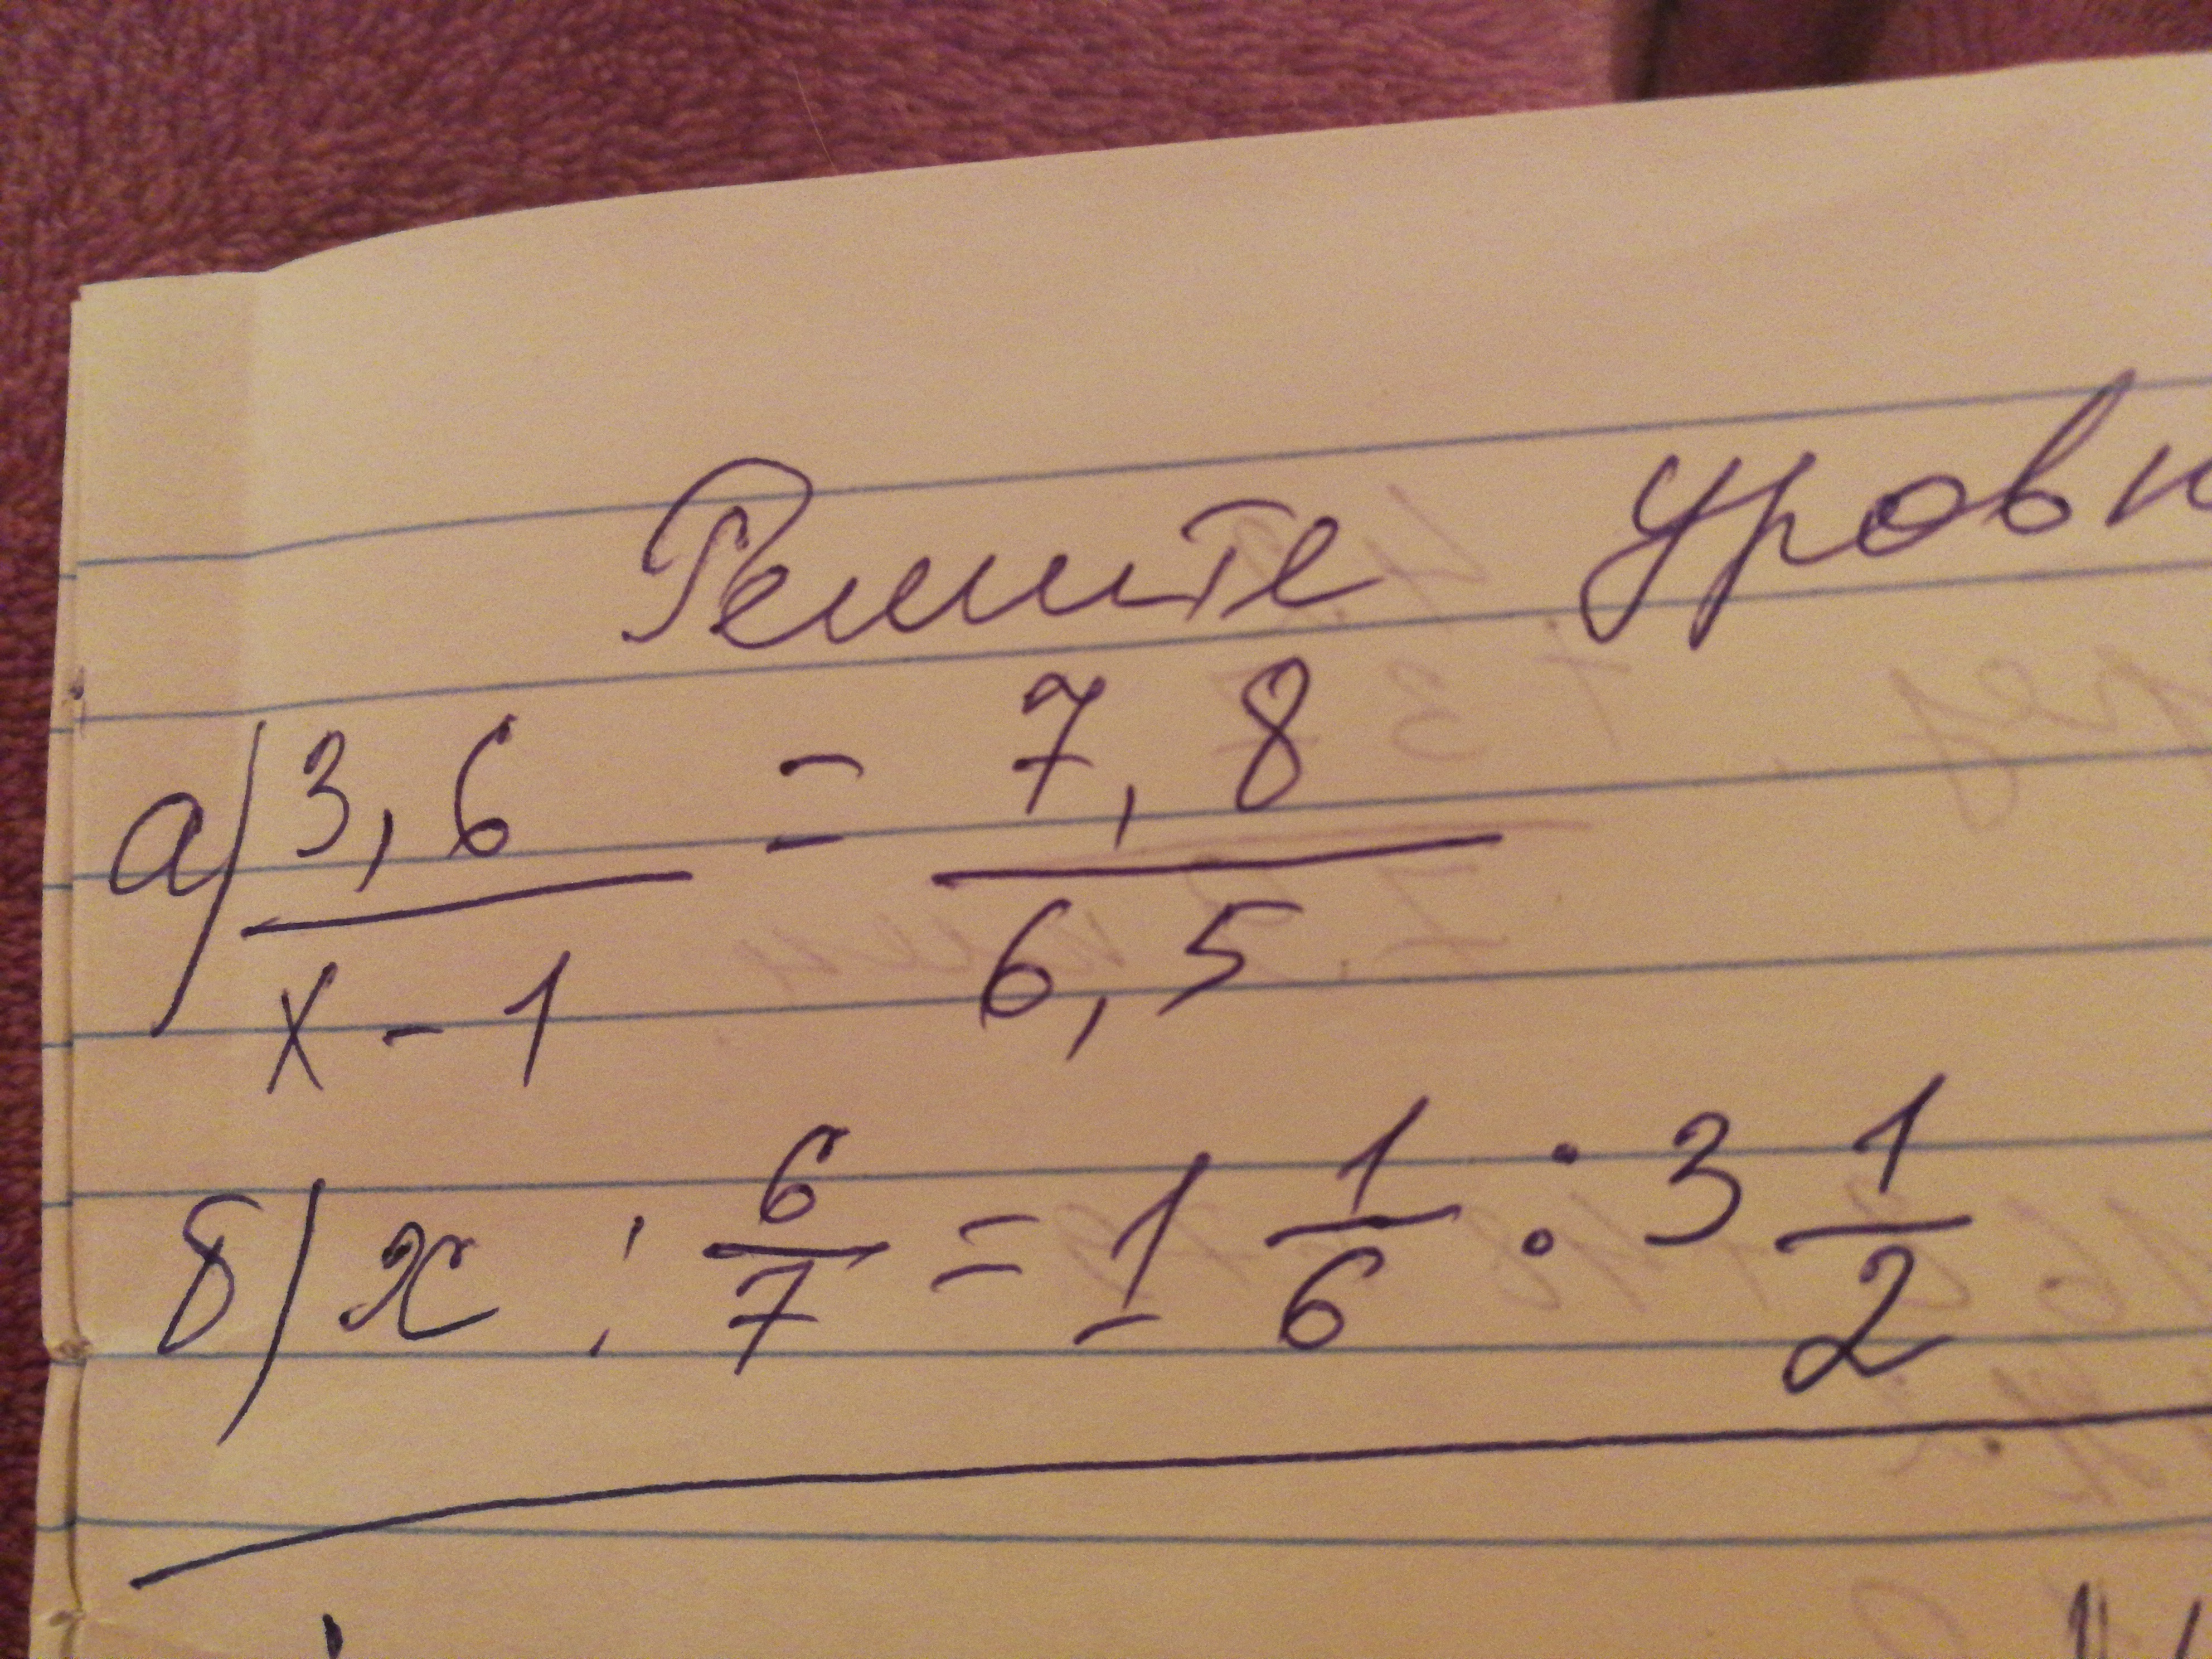 Решите уровн
а) 3,6 / x - 1 = 7,8 / 6,5
б) x : 6/7 = 1 1/6 : 3 1/2